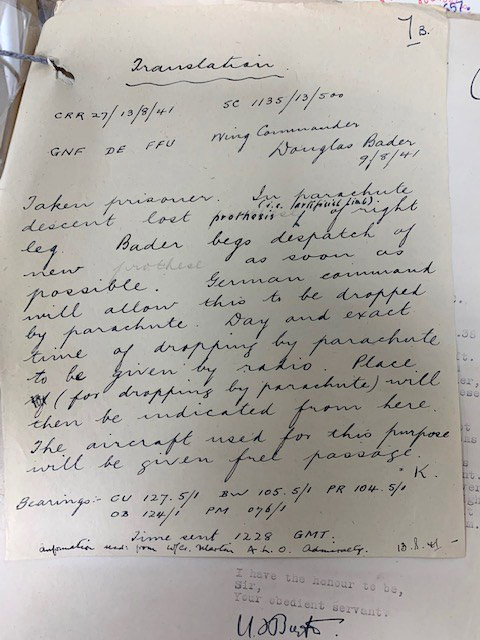 7B.
Translation.
CRR 27/13/8/41 SC 1135/13/500
GNF DE FFU Wing Commander
Douglas Bader
9/8/41
Taken prisoner. In parachute
(i.e. artificial limb).
descent lost prothesis of right
leg. Bader begs despatch of
new prothese as soon as
possible. German command
will allow this to be dropped
by parachute. Day and exact
time of dropping by parachute
to be given by radio. Place
(for dropping by parachute) will
then be indicated from here.
The aircraft used for this purpose
will be given free passage.
K.
Bearings:- CU 127.5/1 BW 105.5/1 PR 104.5/1
OB 124/1 PM 076/1
Time sent 1228 GMT.
information recd: from W/Cr. Martin A.L.O. Admiralty. 13.8.41
I have the honour to be,
Sir,
Your obedient servant.